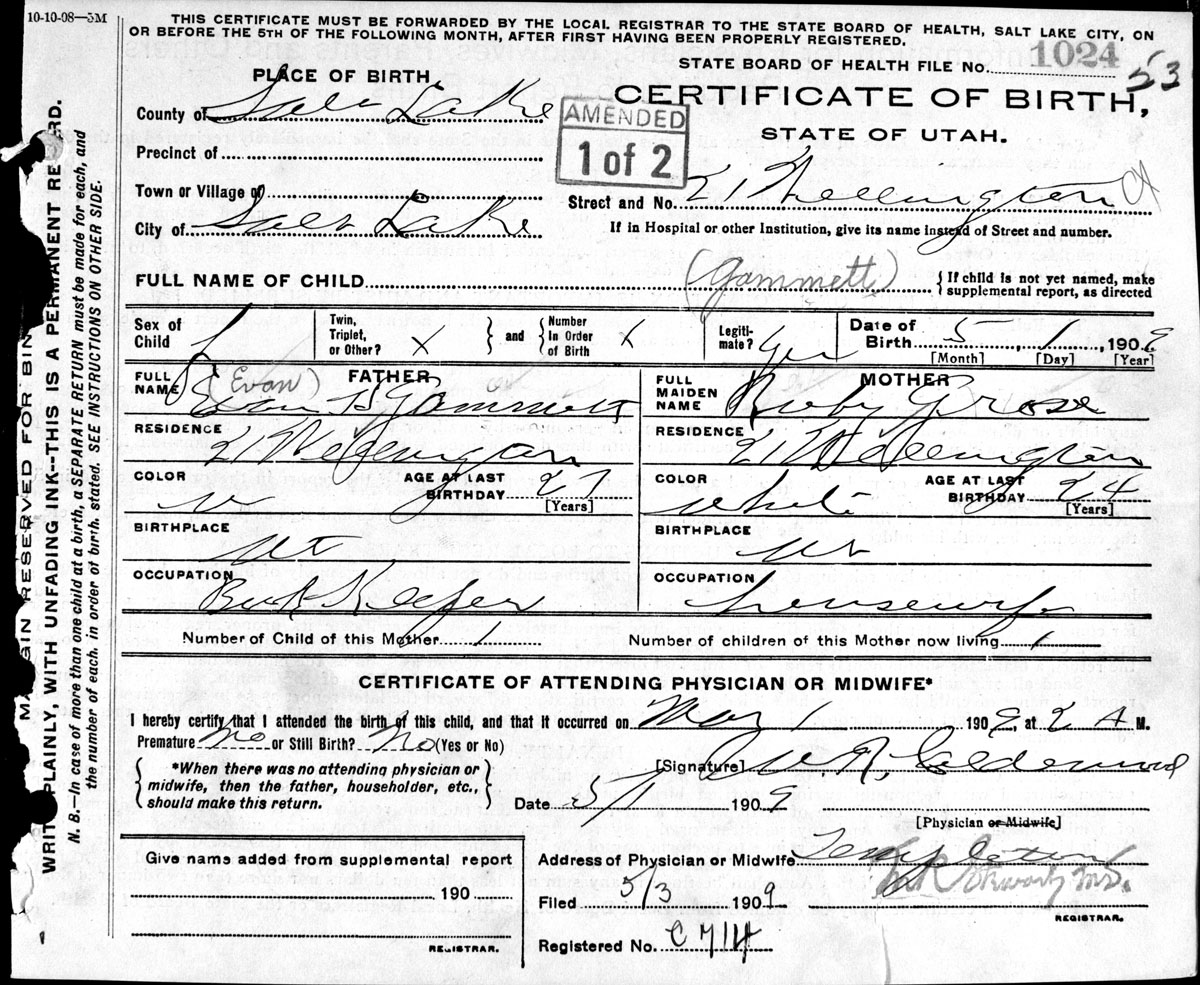 10-10-08—5M
THIS CERTIFICATE MUST BE FORWARDED BY THE LOCAL REGISTRAR TO THE STATE BOARD OF HEALTH, SALT LAKE CITY, ON
OR BEFORE THE 5TH OF THE FOLLOWING MONTH, AFTER FIRST HAVING BEEN PROPERLY REGISTERED.
STATE BOARD OF HEALTH FILE No. 1024
53
PLACE OF BIRTH
CERTIFICATE OF BIRTH,
STATE OF UTAH.
County of Salt Lake
AMENDED
1 of 2
Precinct of
Town or Village of
Street and No. 21 Wellington
City of Salt Lake
If in Hospital or other Institution, give its name instead of Street and number.
FULL NAME OF CHILD (Gammett) { If child is not yet named, make
supplemental report, as directed
Sex of Child f Twin, Triplet, or Other? X } and { Number In Order of Birth X Legitimate? yes Date of Birth 5, 1, 1909
[Month] [Day] [Year]
FATHER
FULL NAME (Evan) Evan B Gammett
MOTHER
FULL MAIDEN NAME Ruby Grose
RESIDENCE 21 Wellington
RESIDENCE 21 Wellington
COLOR W AGE AT LAST BIRTHDAY 27 [Years]
COLOR White AGE AT LAST BIRTHDAY 24 [Years]
BIRTHPLACE Ut
BIRTHPLACE Ut
OCCUPATION Book Keeper
OCCUPATION housewife
Number of Child of this Mother 1 Number of children of this Mother now living 1
CERTIFICATE OF ATTENDING PHYSICIAN OR MIDWIFE*
I hereby certify that I attended the birth of this child, and that it occurred on May 1 1909, at 2 A M.
Premature No or Still Birth? No (Yes or No)
{ *When there was no attending physician or
midwife, then the father, householder, etc.,
should make this return. }
[Signature] W. R. Calderwood
Date 5/1 1909
[Physician or Midwife]
Give name added from supplemental report
190
REGISTRAR.
Address of Physician or Midwife Templeton
Filed 5/3 1909
M.D.
REGISTRAR.
Registered No. C 714
MARGIN RESERVED FOR BIN
WRITE PLAINLY, WITH UNFADING INK--THIS IS A PERMANENT RECORD.
N. B.—In case of more than one child at a birth, a SEPARATE RETURN must be made for each, and
the number of each, in order of birth, stated. SEE INSTRUCTIONS ON OTHER SIDE.